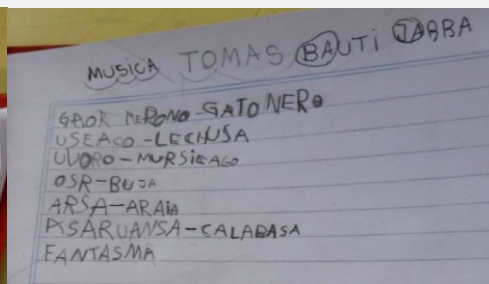 MUSICA TOMAS BAUTI JARBA
GAOR NERONO-GATO NERO
USEACO-LECHUSA
UVORO-MURSIEAGO
OSR-BUJA
ARSA-ARAiA
PISARUANSA-CALABASA
FANTASMA